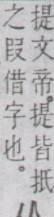 提文帝。提皆抵
之叚借字也。